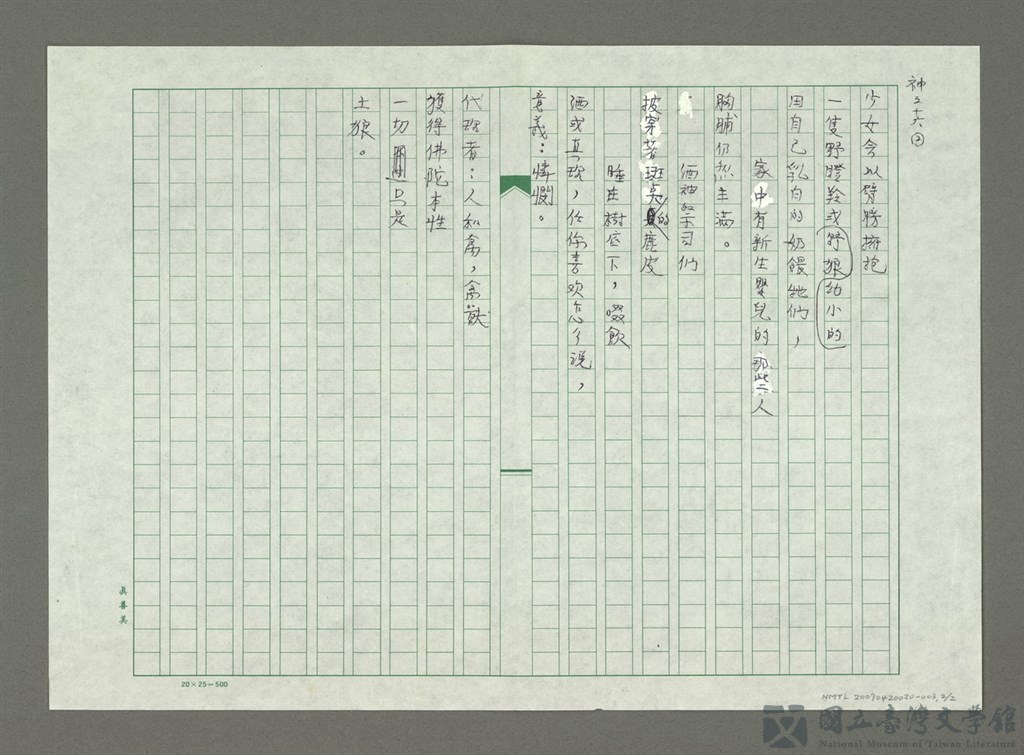 神之六 ②
少女會以臂膀擁抱
一隻野瞪羚或野狼幼小的
用自己乳白的奶餵牠們，
家中有新生嬰兒的那些人
胸脯仍然丰滿。
酒神祭司們
披穿著斑奐的鹿皮
睡在樹底下，啜飲
酒或真理，任你喜欢怎么說，
意義：憐憫。
代理者：人和禽，禽獸
獲得佛陀本性
一切 只是
土狼。
真善美
20×25=500
NMTL 20090420030-003, 2/2
國立臺灣文學館
National Museum of Taiwan Literature